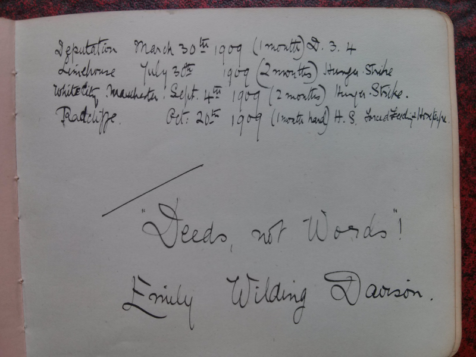 Deputation March 30th 1909 (1 month) D. 3. 4
Limehouse July 30th 1909 (2 months) Hunger-Strike
White City, Manchester. Sept. 4th 1909 (2 months) Hunger-Strike.
Radcliffe. Oct. 20th 1909 (1 month hard) H.S. Forced Feeding + Hose pipe
"Deeds, not Words"!
Emily Wilding Davison.